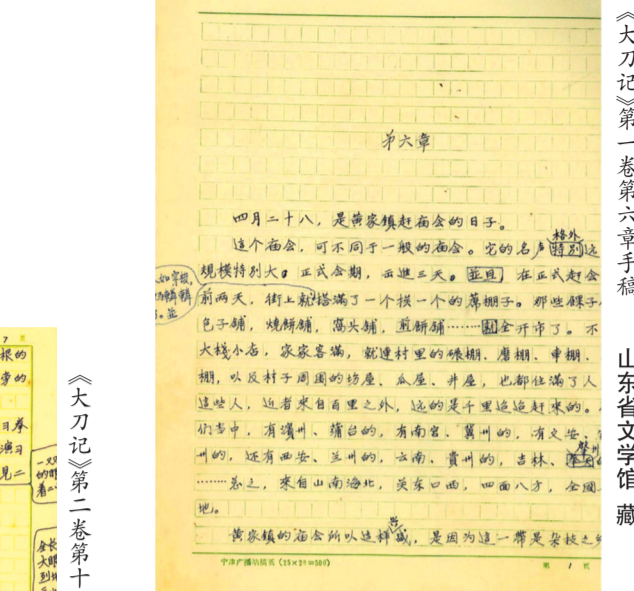 《大刀记》第一卷第六章手稿
山东省文学馆 藏
第六章
四月二十八，是黄家镇赶庙会的日子。
这个庙会，可不同于一般的庙会。它的名声格外特别远
规模特别大。正式会期，一連三天。並且在正式赶会
前两天，街上就搭满了一个挨一个的蓆棚子。那些馃子
包子鋪，烧餅鋪，窝头鋪，煎餅鋪………全开市了。不
大棧小店，家家客滿，就連村里的碾棚、磨棚、車棚、
棚，以及村子周圍的坊屋、瓜屋、井屋，也都住滿了人
這些人，近者来自百里之外，远的是千里迢迢赶来的。
们当中，有濱州、蒲台的，有南宫、冀州的，有文安、
州的，还有西安、兰州的，云南、貴州的，吉林、
………总之，来自山南海北，关东口西，四面八方，全國
地。
黄家镇的庙会所以这样盛，是因为這一帶是杂技之
宁津广播站稿纸（25×20=500）
第 1 页
《大刀记》第二卷第十
7 页
根的
旁的
习拳
演习
见二